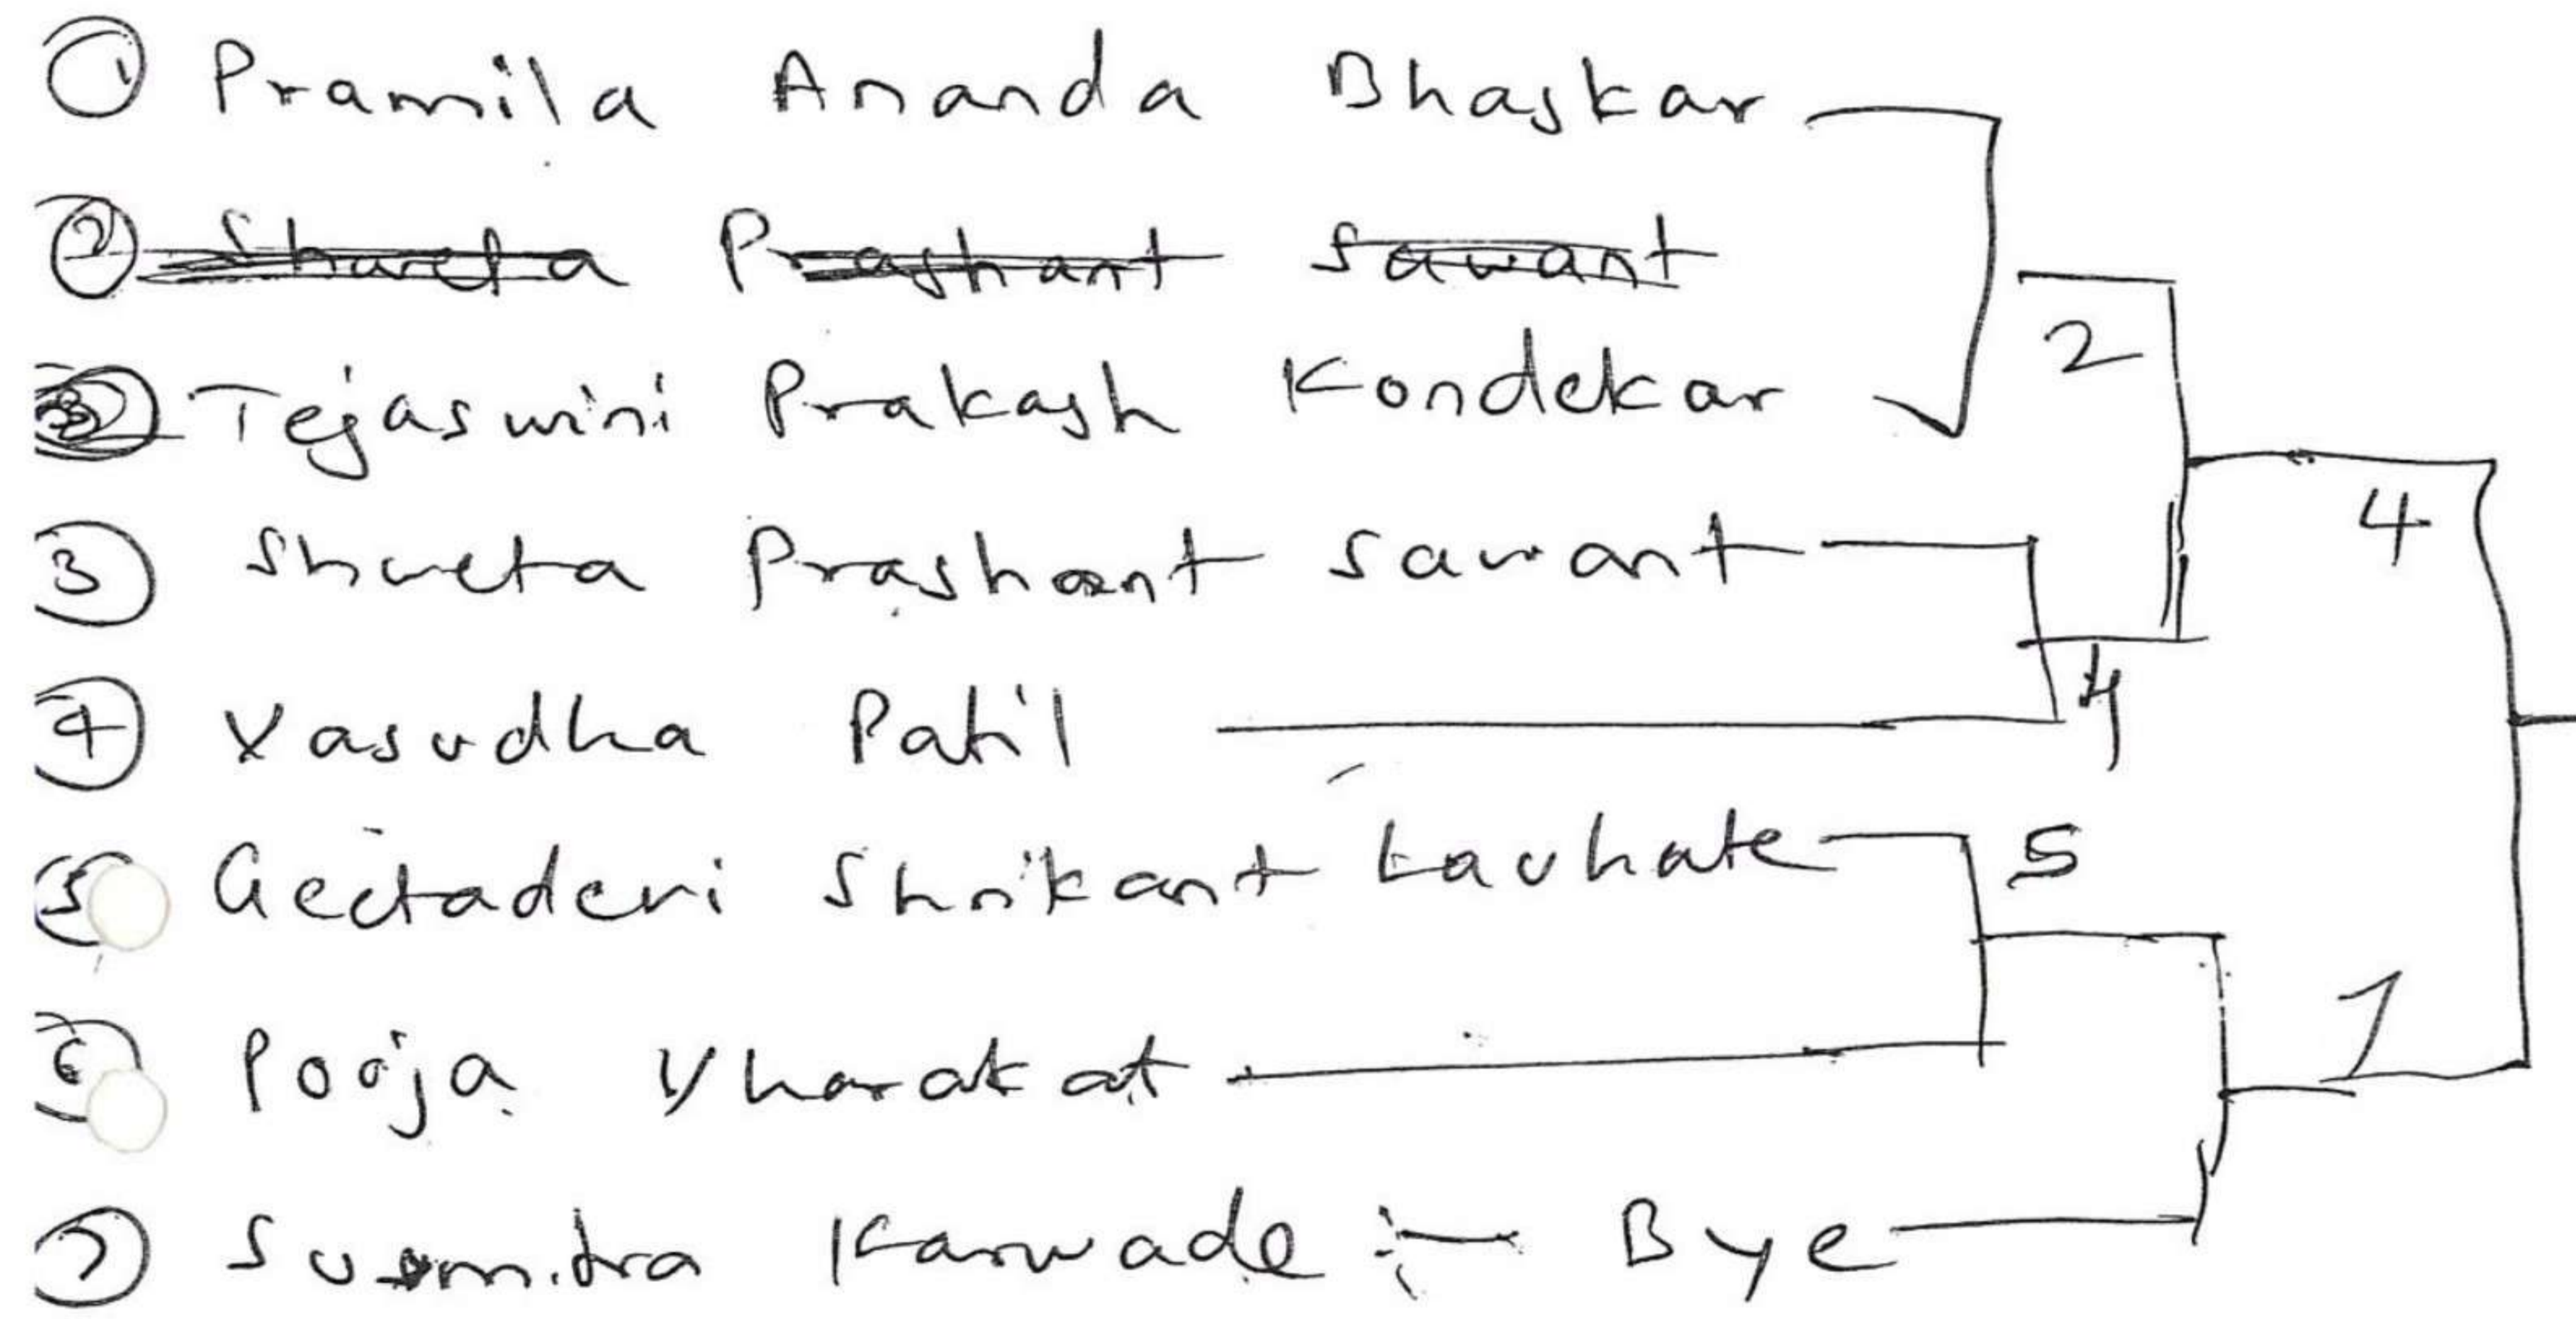 ① Pramila Ananda Bhaskar
② Shweta Prashant Sawant
2
Tejaswini Prakash Kondekar
4
③ Shweta Prashant Sawant
④ Vasudha Patil
4
⑤ Geetadevi Shrikant Lavhate 5
⑥ Pooja Vharakat
7
⑦ Sumitra Karwade :— Bye